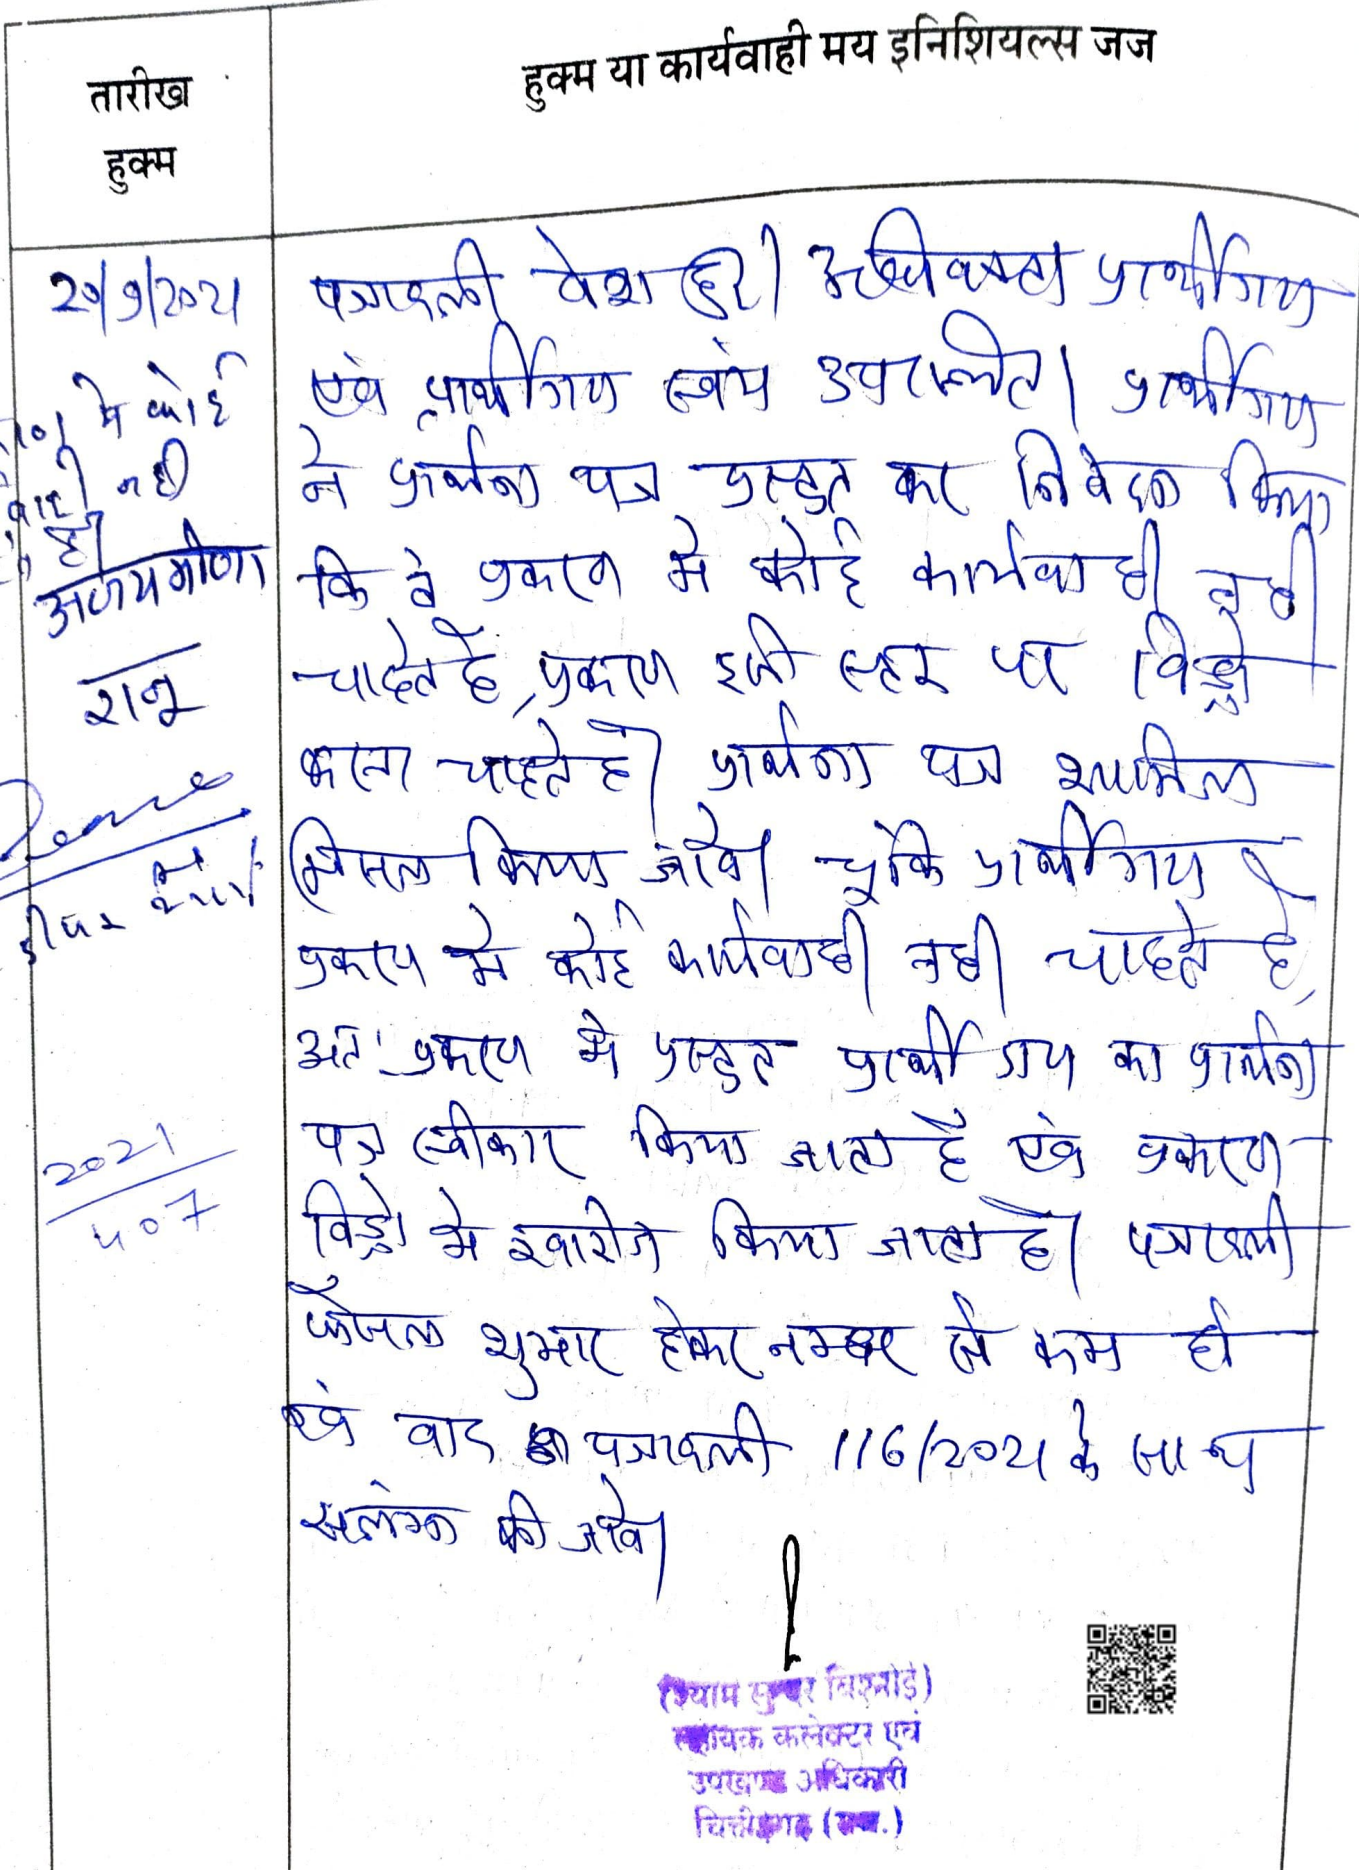 तारीख
हुक्म
हुक्म या कार्यवाही मय इनिशियल्स जज
20/9/2021
पत्रावली पेश हुई। अधिवक्ता प्रार्थीगण
एवं प्रार्थीगण स्वंय उपस्थित। प्रार्थीगण
ने प्रार्थना पत्र प्रस्तुत कर निवेदन किया
कि वे प्रकरण मे कोई कार्यवाही नही
चाहते है, प्रकरण इसी स्तर पर विड्रो
करना चाहते है। प्रार्थना पत्र शामिल
मिसल किया जावे। चूंकि प्रार्थीगण
प्रकरण मे कोई कार्यवाही नही चाहते है,
अतः प्रकरण मे प्रस्तुत प्रार्थीगण का प्रार्थना
पत्र स्वीकार किया जाता है एवं प्रकरण
विड्रो मे खारीज किया जाता है। पत्रावली
फैसल शुमार होकर नम्बर से कम हो
एवं वाद पत्रावली 116/2021 के साथ
सलंग्न की जावे।
मे कोई
नही
है।
अजय मीणा
शनू
2021
407
(श्याम सुन्दर विश्नोई)
सहायक कलेक्टर एवं
उपखण्ड अधिकारी
चित्तौड़गढ़ (राज.)